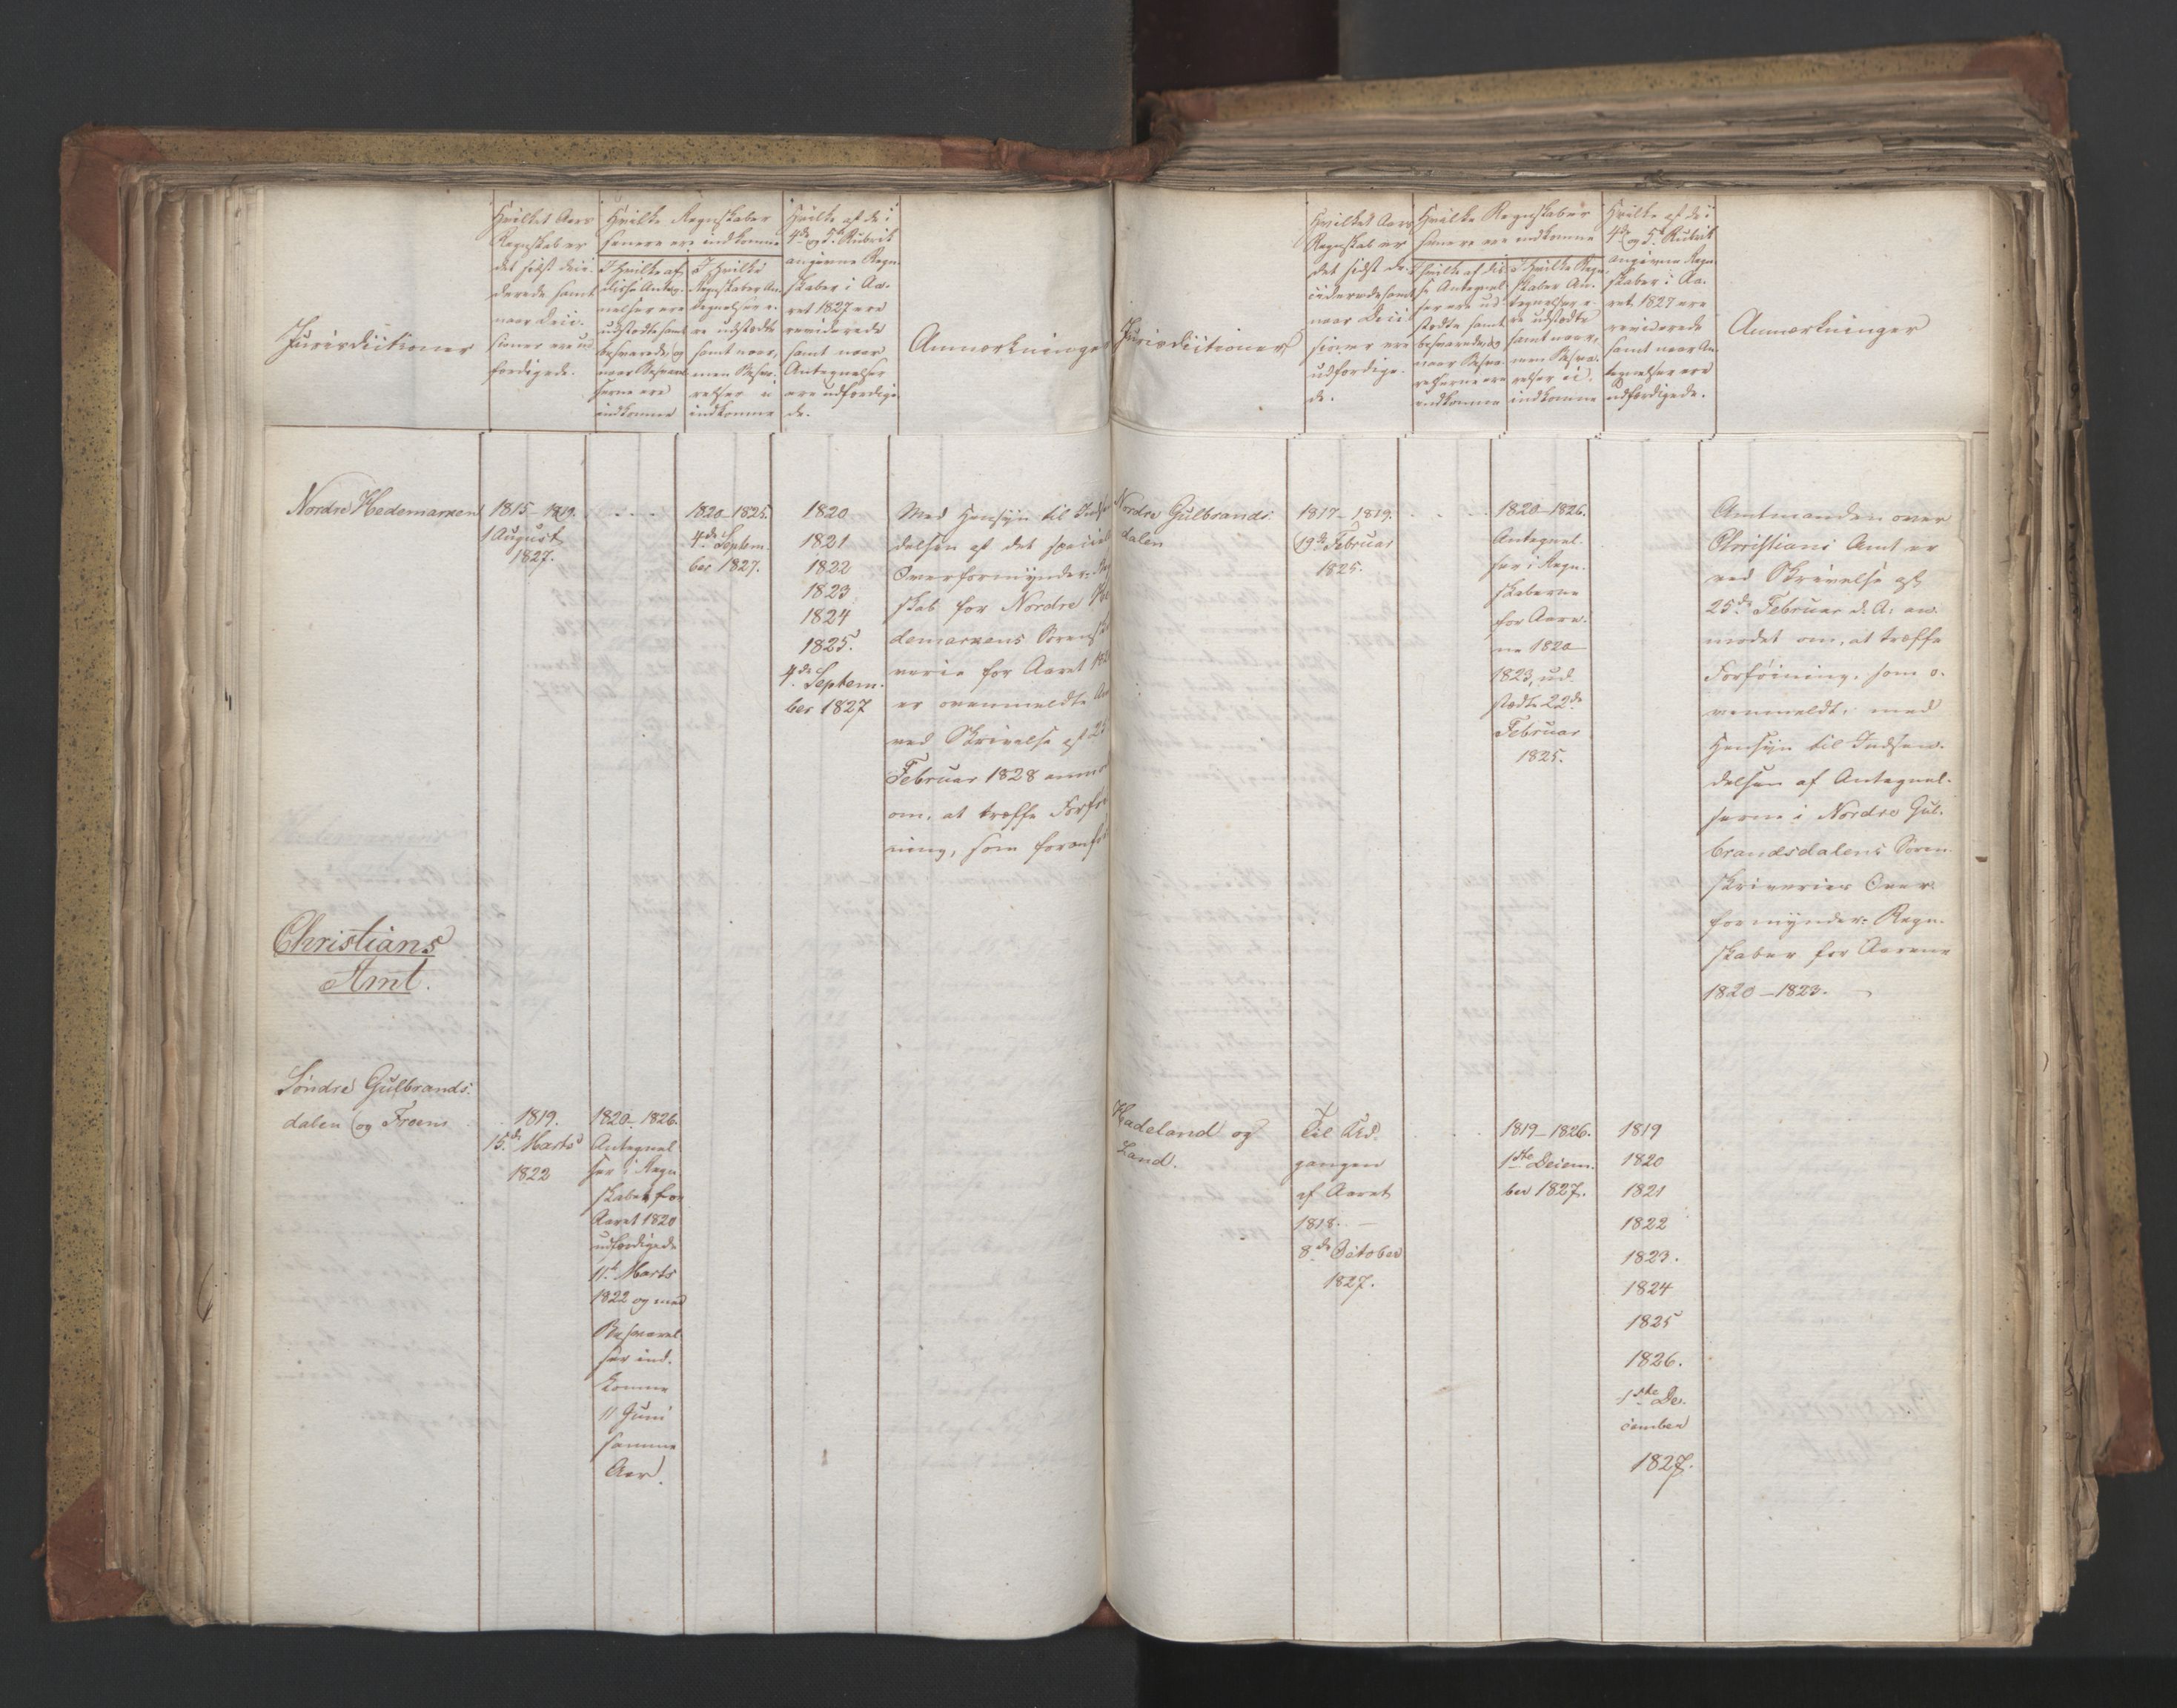 Jurisdictioner
Hvilket Aars
Regnskab er
det sidst deci-
derede samt
naar Deci-
sioner ere ud
færdigede.
Hvilke Regnskaber
senere ere indkomne
I Hvilke af
disse Anteg-
nelser ere
udstædte samt
besvarede, og
naar Besvarel-
serne ere
indkomne
I Hvilke
Regnskaber An-
tegnelser e-
re udstædte
samt naar,
men Besva-
relser ei
indkomne
Hvilke af de i
4de og 5te Rubrik
angivne Regn-
skaber i Aa-
ret 1827 ere
reviderede
samt naar
Antegnelser
ere udfærdige-
de.
Anmærkninger
Nordre Hedemarken
1815–1819.
1 August
1827.
1820–1825.
4de Septem-
ber 1827.
1820
1821
1822
1823
1824
1825.
4de Septem-
ber 1827
Med Hensyn til Indsen
delsen af det specielle
Overformynder-Regn
skab for Nordre He
demarkens Sorenskri
verie for Aaret
er ovenmeldte Amt
ved Skrivelse af 25
Februar 1828 anmo
om, at træffe Forføi
ning, som foranført
Christians
Amt.
Söndre Gulbrands-
dalen og Froen
1819.
15de Marts
1822
1820–1826.
Antegnel
ser i Regn
skabet for
Aaret 1820
udfærdigede
11te Marts
1822 og med
Besvarel
ser ind-
komne
11 Juni
samme
Aar.
Jurisdictioner
Hvilket Aars
Regnskab er
det sidst de-
ciderede samt
naar Deci
sioner ere
udfærdige-
de.
Hvilke Regnskaber
senere ere indkomne
I hvilke af dis-
se Antegnel
ser ere ud
stædte samt
besvarede, og
naar Besva-
relserne ere
indkomne
I hvilke Regn-
skaber An-
tegnelser e-
re udstædte
samt naar,
men Besva-
relser ei
indkomne
Hvilke af de i
4de og 5te Rubrik
angivne Regn-
skaber i Aa-
ret 1827 ere
reviderede
samt naar An-
tegnelser ere
udfærdigede.
Anmærkninger
Nordre Gulbrands-
dalen
1817–1819.
19de Februar
1825.
1820–1826.
Antegnel-
ser i Regn-
skaberne
for Aare-
ne 1820–
1823, ud-
stædte 22de
Februar
1825.
Amtmanden over
Christians Amt er
ved Skrivelse af
25de Februar d. A. an-
modet om, at træffe
Forføining, som o-
venmeldt, med
Hensyn til Indsen-
delsen af Antegnel-
serne i Nordre Gul-
brandsdalens Soren-
skriveries Over-
formynder-Regn-
skaber for Aarene
1820–1823.
Hadeland og
Land.
Til Ud-
gangen
af Aaret
1818. –
8de October
1827.
1819–1826.
1ste Decem-
ber 1827.
1819
1820
1821
1822
1823.
1824
1825
1826.
1ste De-
cember
1827.